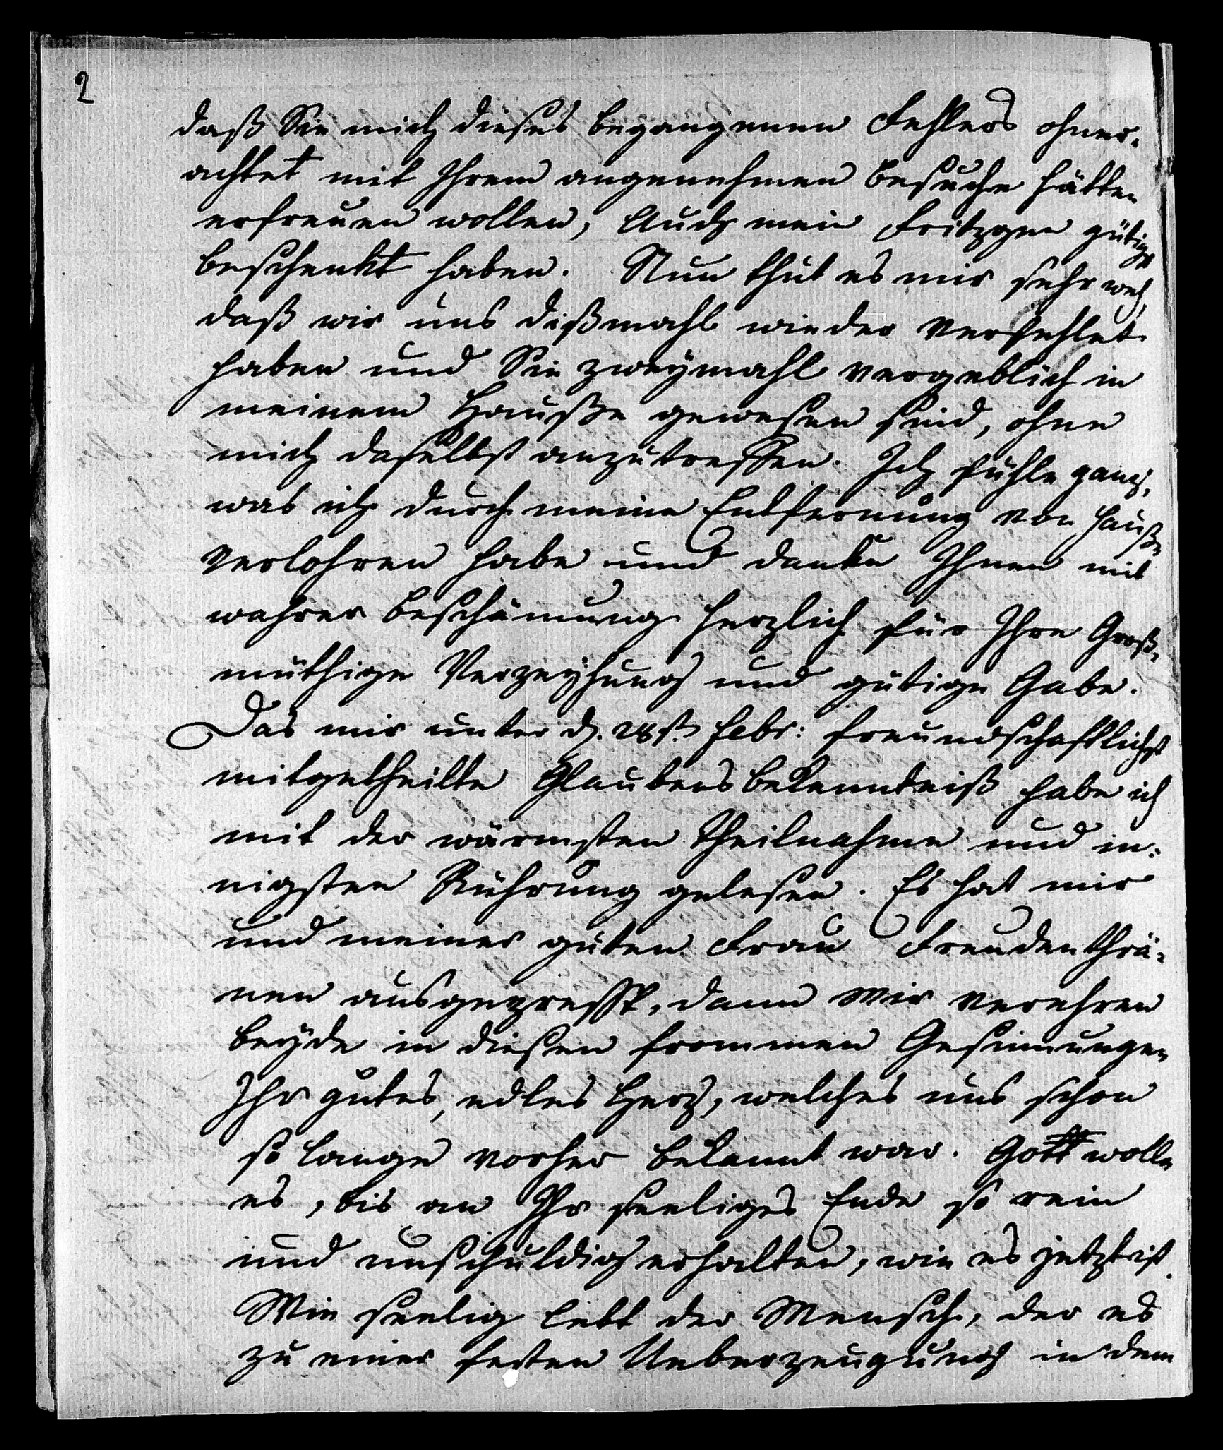 2
daß Sie mich dieses begangenen Fehlers ohner,
achtet mit Ihrem angenehmen Besuche hätten
erfreuen wollen, Auch mein Fritzgen gütigst
beschenkt haben. Nun thut es mir sehr weh,
daß wir uns dißmahl wieder verfehlet
haben und Sie zweymahl vergeblich in
meinem Hauße gewesen sind, ohne
mich daselbst anzutreffen. Ich fühle ganz,
was ich durch meine Entfernung von Hauße
verlohren habe und danke Ihnen mit
wahrer Beschämung herzlich für Ihre Groß,
müthige Verzeyhung und gütige Gabe.
Das mir unter d. 28st. Febr: freundschaftlichst
mitgetheilte Glaubensbekenntniß habe ich
mit der wärmsten Theilnahme und in,
nigsten Rührung gelesen. Es hat mir
und meiner guten Frau Freudenthrä,
nen ausgepresst, dann wir verehren
beyde in diesen frommen Gesinnungen
Ihr gutes, edles Herz, welches uns schon
so lange vorher bekannt war. Gott wolle
es, bis an Ihr seeliges Ende so rein
und unschuldig erhalten, wie es jetzt ist.
Wie seelig lebt der Mensch, der es
zu einer festen Ueberzeugung in dem